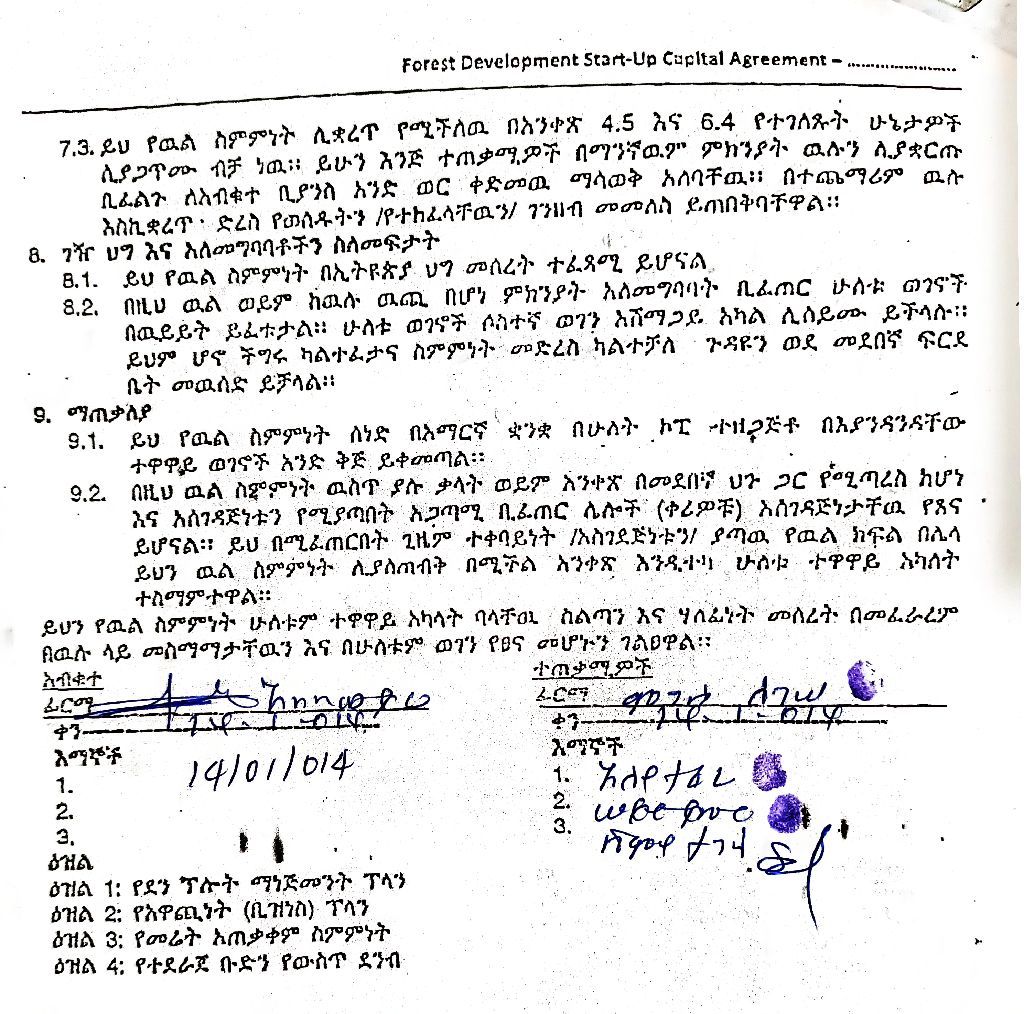 Forest Development Start-Up Capital Agreement – ........................
7.3. ይህ የዉል ስምምነት ሊቋረጥ የሚችለዉ በአንቀጽ 4.5 እና 6.4 የተገለጹት ሁኔታዎች
ሲያጋጥሙ ብቻ ነዉ፡፡ ይሁን እንጅ ተጠቃሚዎች በማንኛዉም ምክንያት ዉሉን ሊያቋርጡ
ቢፈልጉ ለአብቁተ ቢያንስ አንድ ወር ቀድመዉ ማሳወቅ አለባቸዉ፡፡ በተጨማሪም ዉሉ
እስኪቋረጥ ድረስ የወሰዱትን /የተከፈላቸዉን/ ገንዘብ መመለስ ይጠበቅባቸዋል፡፡
8. ገዥ ህግ እና አለመግባባቶችን ስለመፍታት
8.1. ይህ የዉል ስምምነት በኢትዩጵያ ህግ መሰረት ተፈጻሚ ይሆናል
8.2. በዚህ ዉል ወይም ከዉሉ ዉጪ በሆነ ምክንያት አለመግባባት ቢፈጠር ሁለቱ ወገኖች
በዉይይት ይፈቱታል፡፡ ሁለቱ ወገኖች ሶስተኛ ወገን አሸማጋይ አካል ሊሰይሙ ይችላሉ፡፡
ይህም ሆኖ ችግሩ ካልተፈታና ስምምነት መድረስ ካልተቻለ ጉዳዩን ወደ መደበኛ ፍርደ
ቤት መዉሰድ ይቻላል፡፡
9. ማጠቃለያ
9.1. ይህ የዉል ስምምነት ሰነድ በአማርኛ ቋንቋ በሁለት ኮፒ ተዘጋጅቶ በእያንዳንዳቸው
ተዋዋይ ወገኖች አንድ ቅጅ ይቀመጣል፡፡
9.2. በዚህ ዉል ስምምነት ዉስጥ ያሉ ቃላት ወይም አንቀጽ በመደበኛ ህጉ ጋር የሚጣረስ ከሆነ
እና አስገዳጅነቱን የሚያጣበት አጋጣሚ ቢፈጠር ሌሎች (ቀሪዎቹ) አስገዳጅነታቸዉ የጸና
ይሆናል፡፡ ይህ በሚፈጠርበት ጊዜም ተቀባይነት /አስገደጅነቱን/ ያጣዉ የዉል ክፍል በሌላ
ይህን ዉል ስምምነት ሊያስጠብቅ በሚችል አንቀጽ እንዲተካ ሁለቱ ተዋዋይ አካለት
ተስማምተዋል፡፡
ይህን የዉል ስምምነት ሁለቱም ተዋዋይ አካላት ባላቸዉ ስልጣን እና ሃላፊነት መሰረት በመፈራረም
በዉሉ ላይ መስማማታቸዉን እና በሁለቱም ወገን የፀና መሆኑን ገልፀዋል፡፡
አብቁተ
ፊርማ
ቀን
እማኞች
14/01/014
1.
2.
3.
ተጠቃሚዎች
ፊርማ
ቀን
እማኞች
1.
2.
3.
ዕዝል
ዕዝል 1: የደን ፕሎት ማነጅመንት ፕላን
ዕዝል 2: የአዋጪነት (ቢዝነስ) ፕላን
ዕዝል 3: የመሬት አጠቃቀም ስምምነት
ዕዝል 4: የተደራጀ ቡድን የውስጥ ደንብ